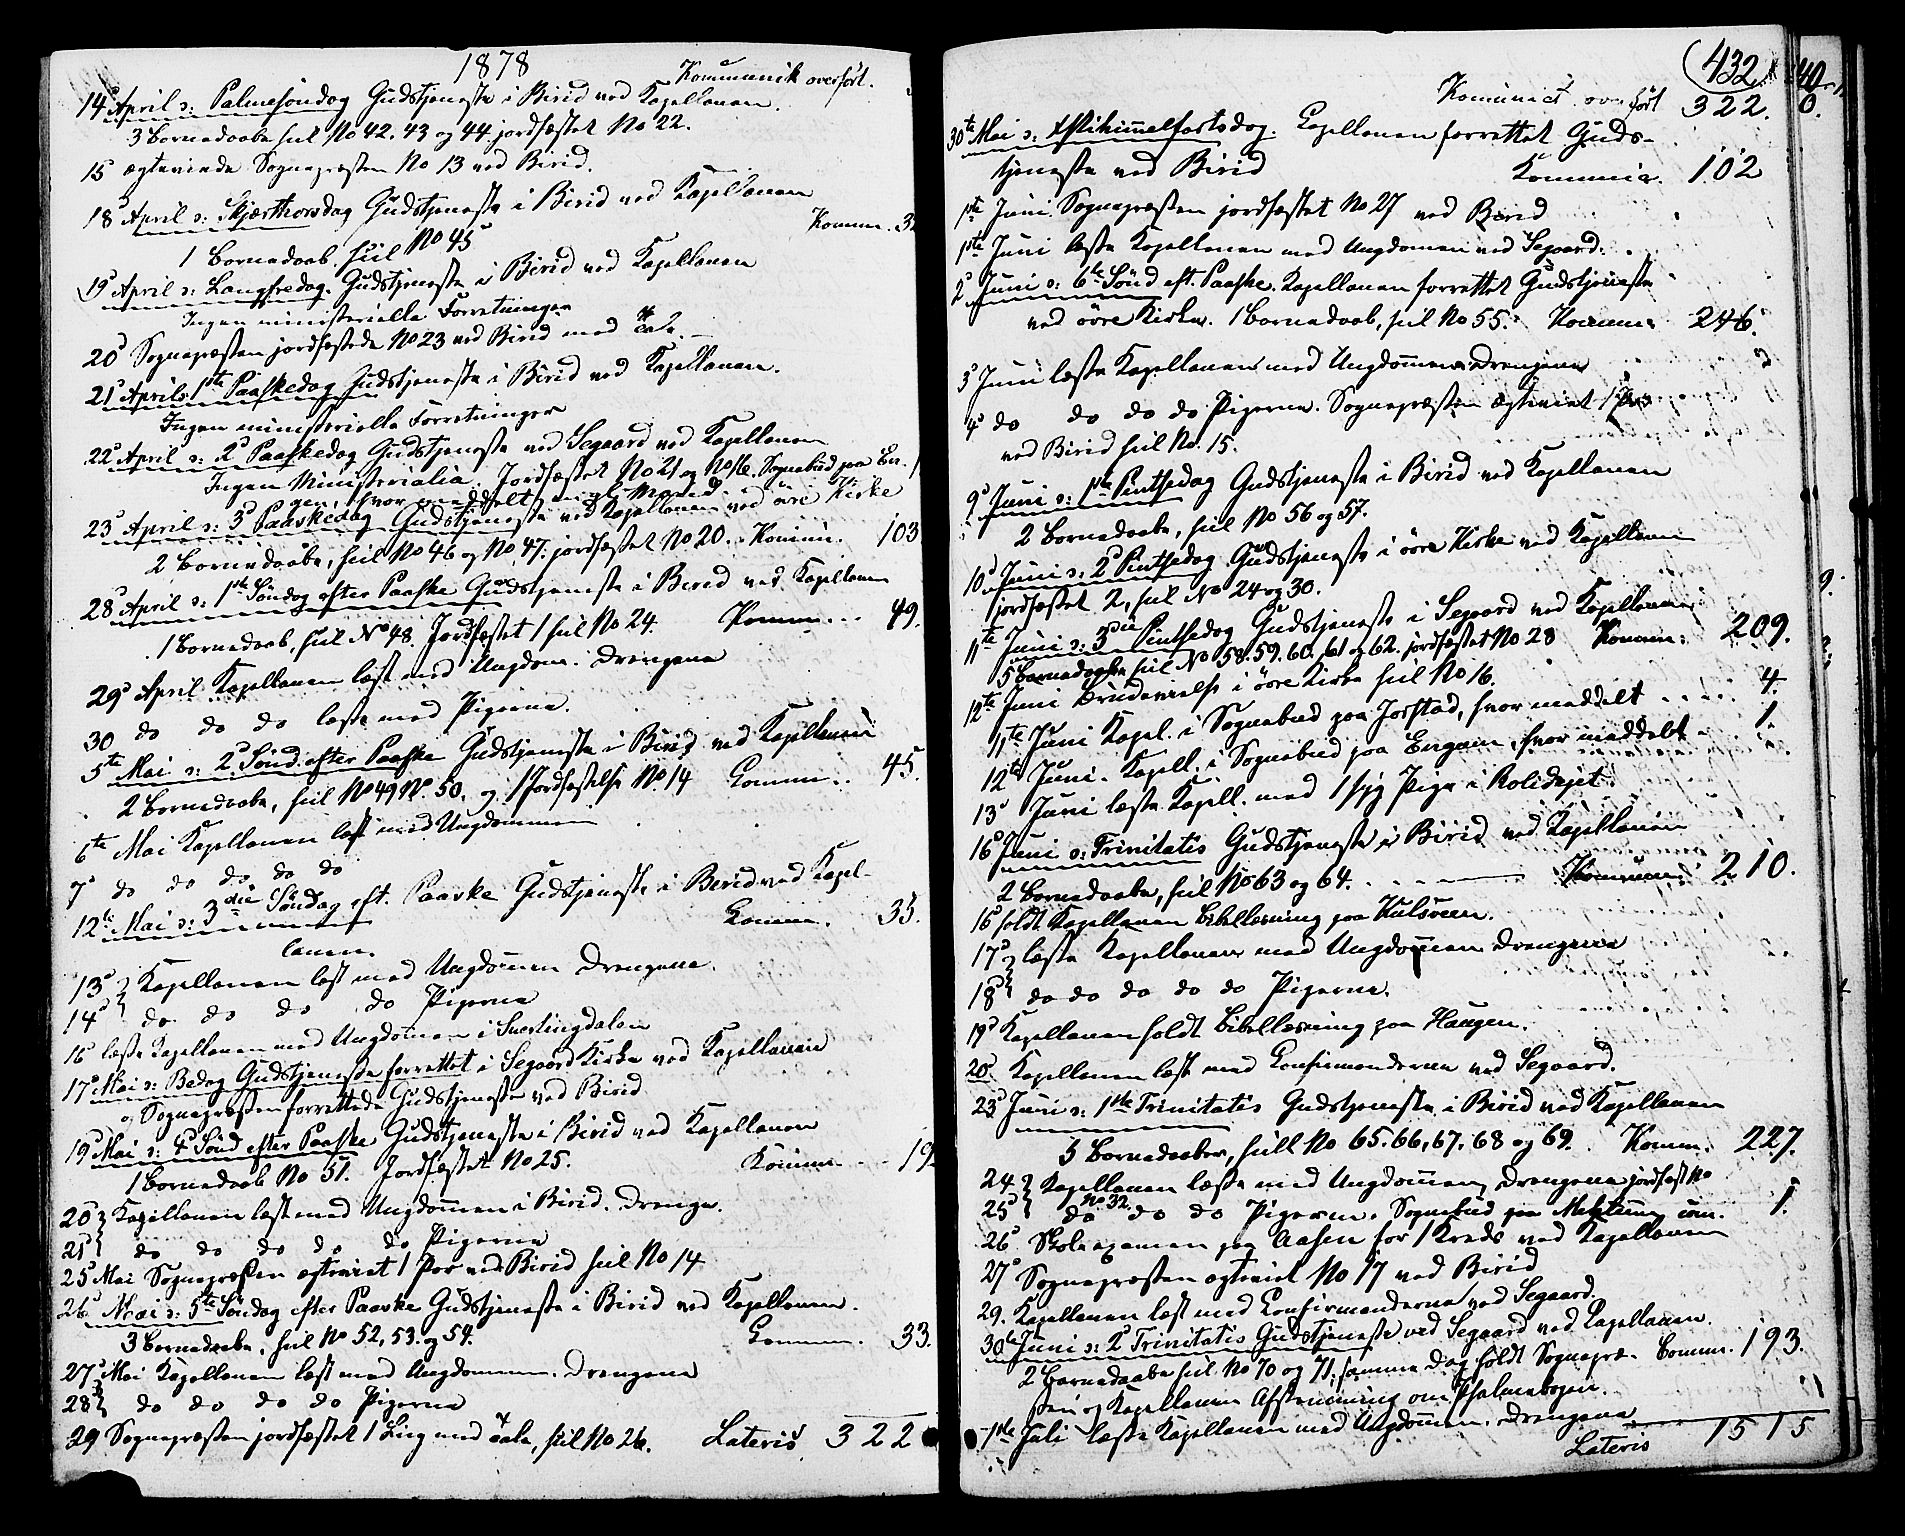 1878
Kommunik overført.
14d April ɔ: Palmesöndag Gudstjeneste i Birid ved Kapellanen.
3 Bornedaabe hiil No 42. 43 og 44. jordfæstet No 22.
15 ægteviede Sognepræsten No 13 ved Birid.
18d April ɔ: Skjærthorsdag Gudstjeneste i Birid ved Kapellanen
Komm. 3
1 Bornedaab hiil No 45
19d April ɔ: Langfredag. Gudstjeneste i Birid ved Kapellanen
Ingen ministerielle Forretninger
20d Sognepræsten jordfæstede No 23 ved Birid med Tale.
21d April ɔ: 1ste Paaskedag Gudstjeneste i Birid ved Kapellanen.
Ingen ministerielle Forretninger
22d April ɔ: 2d Paaskedag Gudstjeneste ved Segaard ved Kapellanen
Ingen Ministerialia. Jordfæstet No 21 og No 16. Sognebud paa En-
gen, hvor meddelt
23d April ɔ: 3d Paaskedag Gudstjeneste ved Kapellanen ved øvre Kirke
2 Bornedaabe, hiil No 46 og No 47. jordfæstet No 20. Komm. 103
28d April ɔ: 1ste Söndag efter Paaske Gudstjeneste i Birid ved Kapellanen
1 Bornedaab, hiil No 48. Jordfæstet 1 hiil No 24. Komm... 49.
29d April Kapellanen læst med Ungdom. Drengene
30 do do do læste med Pigerne.
5te Mai ɔ: 2d Sönd. efter Paaske Gudstjeneste i Birid ved Kapellanen
2 Bornedaabe, hiil No 49 No. 50. og 1 Jordfæstelse No. 14 Comm.. 45.
6te Mai Kapellanen læst med Ungdommen
7d do do do do do
12te Mai ɔ: 3die Söndag eft. Paaske Gudstjeneste i Berid ved Kapel-
lanen. Comm. 35.
13d Kapellanen læst med Ungdommen Drengene.
14d do do do do Pigerne
16 læste Kapellanen med Ungdommen i Snertingdalen
17d Mai ɔ: Bedag Gudstjeneste forrettet i Segaard Kirke ved Kapellanen
og Sognepræsten forrettede Gudstjeneste ved Birid
19d Mai ɔ: 4d Sönd efter Paaske Gudstjeneste i Birid ved Kapellanen
1 Bornedaab No 51. Jordfæstet No 25. Komm. 19
20d Kapellanen læst med Ungdommen i Birid. Drenge.
21d do do do do do Pigerne
25d Mai Sognepræsten ægteviet 1 Par ved Birid hiil No 14
26d Mai ɔ: 5te Söndag efter Paaske Gudstjeneste i Birid ved Kapellanen.
3 Bornedaabe, hiil No 52, 53. og 54. Comm. 33.
27d Mai Kapellanen læst med Ungdommen. Drengene
28d do do do do Pigerne
29 Sognepræsten jordfæstet 1 Liig med Tale, hiil No 26. Lateris 322
432
Kommunict. overfört 322.
30te Mai ɔ: Xstihimmelfartsdag. Capellanen forrettet Guds-
tjeneste ved Birid Kommunic. 102
1ste Juni Sognepræsten jordfæstet No 27 ved Birid
1ste Juni læste Kapellanen med Ungdommen ved Segaard.
2d Juni ɔ: 6te Sönd eft. Paaske. Kapellanen forrettet Gudstjeneste
ved øvre Kirke. 1 Bornedaab, hiil No 55. Komm. 246.
3d Juni læste Kapellanen med Ungdommen Drengene
4d do do do do Pigerne. Sognepræsten ægteviet 1 Par
ved Birid hiil No. 15.
9d Juni ɔ: 1ste Pintsedag Gudstjeneste i Birid ved Kapellanen
2 Bornedaabe, hiil No 56 og 57.
10d Juni ɔ: 2d Pintsedag Gudstjeneste i øvre Kirke ved Kapellanen
jordfæstet 2, hiil No 24 og 30.
11te Juni ɔ: 3die Pintsedag Gudstjeneste i Segaard ved Kapellanen
5 Bornedaabe hiil No 58. 59. 60. 61 og 62. jordfæstet No 28 Komm. 209.
12te Juni Brudevielse i øvre Kirke hiil No 16.
11te Juni Kapel. i Sognebud paa Jorstad, hvor meddelt .... 4.
12te Juni. Kapell. i Sognebud paa Engum, hvor meddelt 1.
13d Juni læste Kapell. med 1 syg Pige i
16d Juni ɔ: Trinitatis Gudstjeneste i Birid ved Kapellanen
2 Bornedaabe, hiil No 63 og 64. Kommun. 210.
16d holdt Kapellanen Bibellæsning paa Hulsveen.
17d læste Kapellanen med Ungdommen Drengene
18d do do do do do Pigerne.
19d Kapellanen holdt Bibellæsning paa Haugen.
20d Kapellanen læst med Confirmanderne ved Segaard.
23d Juni ɔ: 1ste Trinitatis Gudstjeneste i Birid ved Kapellanen
5 Bornedaaber, hiil No 65. 66, 67. 68 og 69. Komm. 227.
24 Kapellanen læste med Ungdommen, Drengene jordfæst No
No 32.
25d do do do Pigerne. Sognebud paa com. 1.
26d Skoleexamen paa Aasen for 1 Kreds ved Kapellanen
27d Sognepræsten ægteviet No 17 ved Birid
29. Kapellanen læst med Confirmanderne ved Segaard.
30te Juni ɔ: 2d Trinitatis Gudstjeneste ved Segaard ved Kapellanen.
2 Bornedaabe hiil No 70 og 71. samme Dag holdt Sognepræ- Comm. 193.
sten og Kapellanen Afstemning om Psalmebogen.
1ste Juli læste Kapellanen med Ungdommen. Drengene
Lateris 1515